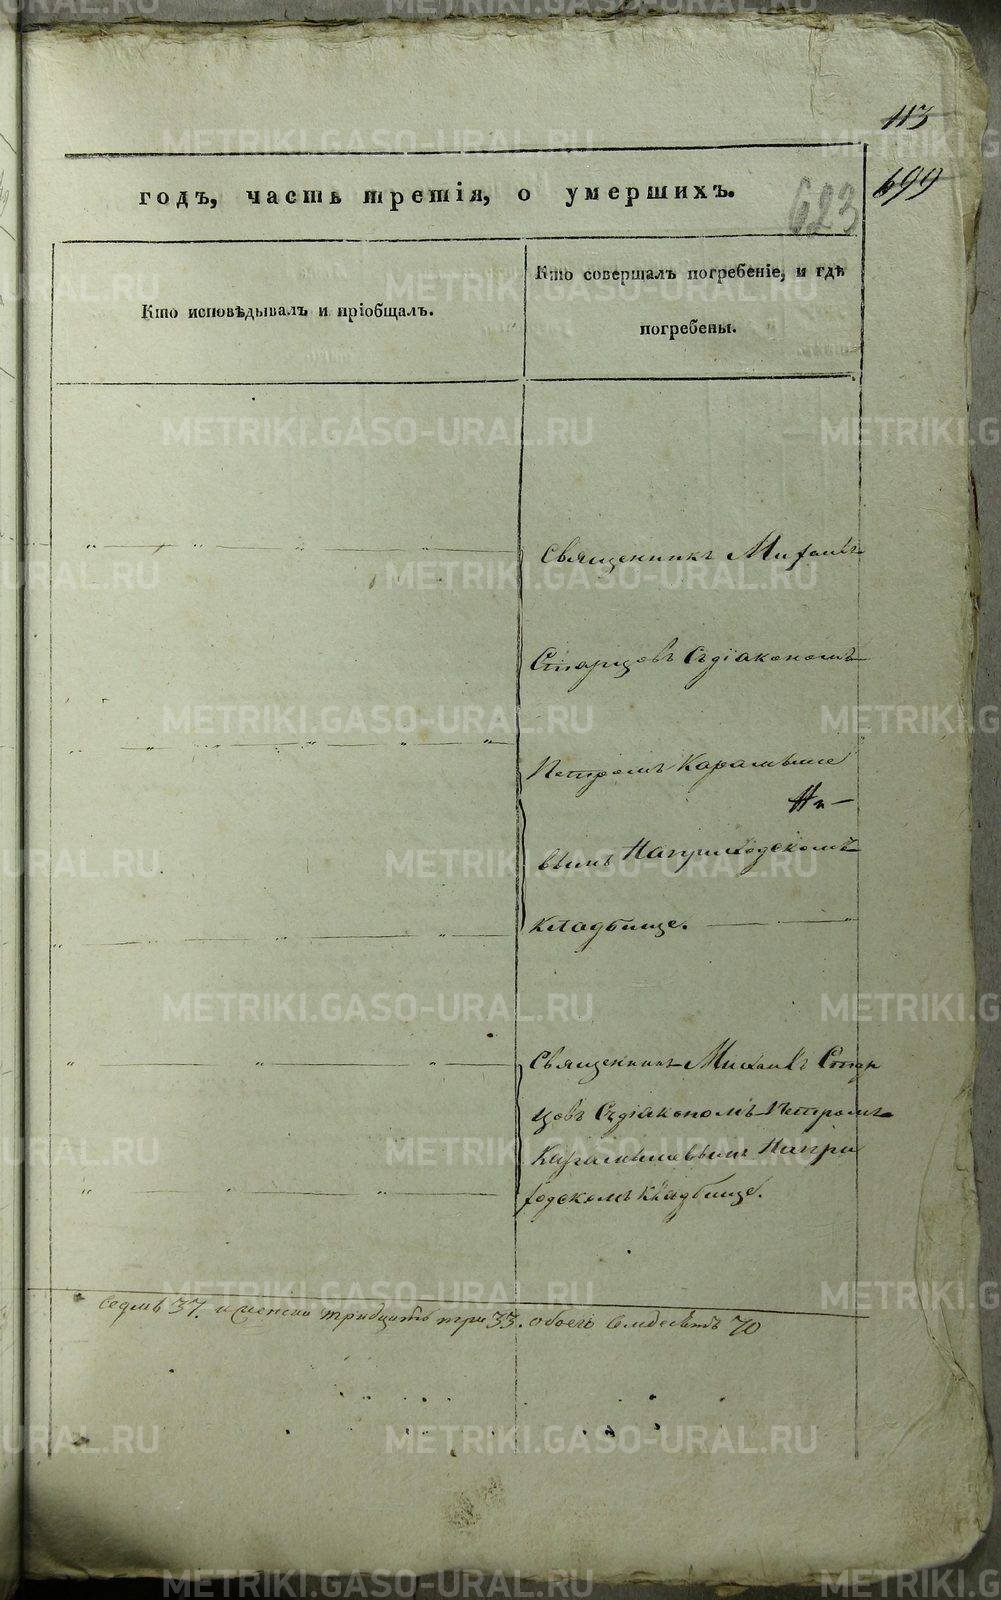 113
699
годъ, часть третія, о умершихъ.
623
Кто исповѣдывалъ и пріобщалъ.
Кто совершалъ погребеніе, и гдѣ
погребены.
Священникъ Михаилъ
Старцовъ Съдіакономъ
Петромъ Карамыше
вымъ Наприходскомъ
Кладбище.
Священникъ Михаилъ Стар
цовъ Съдіакономъ Петромъ
Карамышевымъ Напри
ходскомъ Кладбище.
седмь 37. и женска тридцать три 33. обоего Семдесятъ 70
METRIKI.GASO-URAL.RU